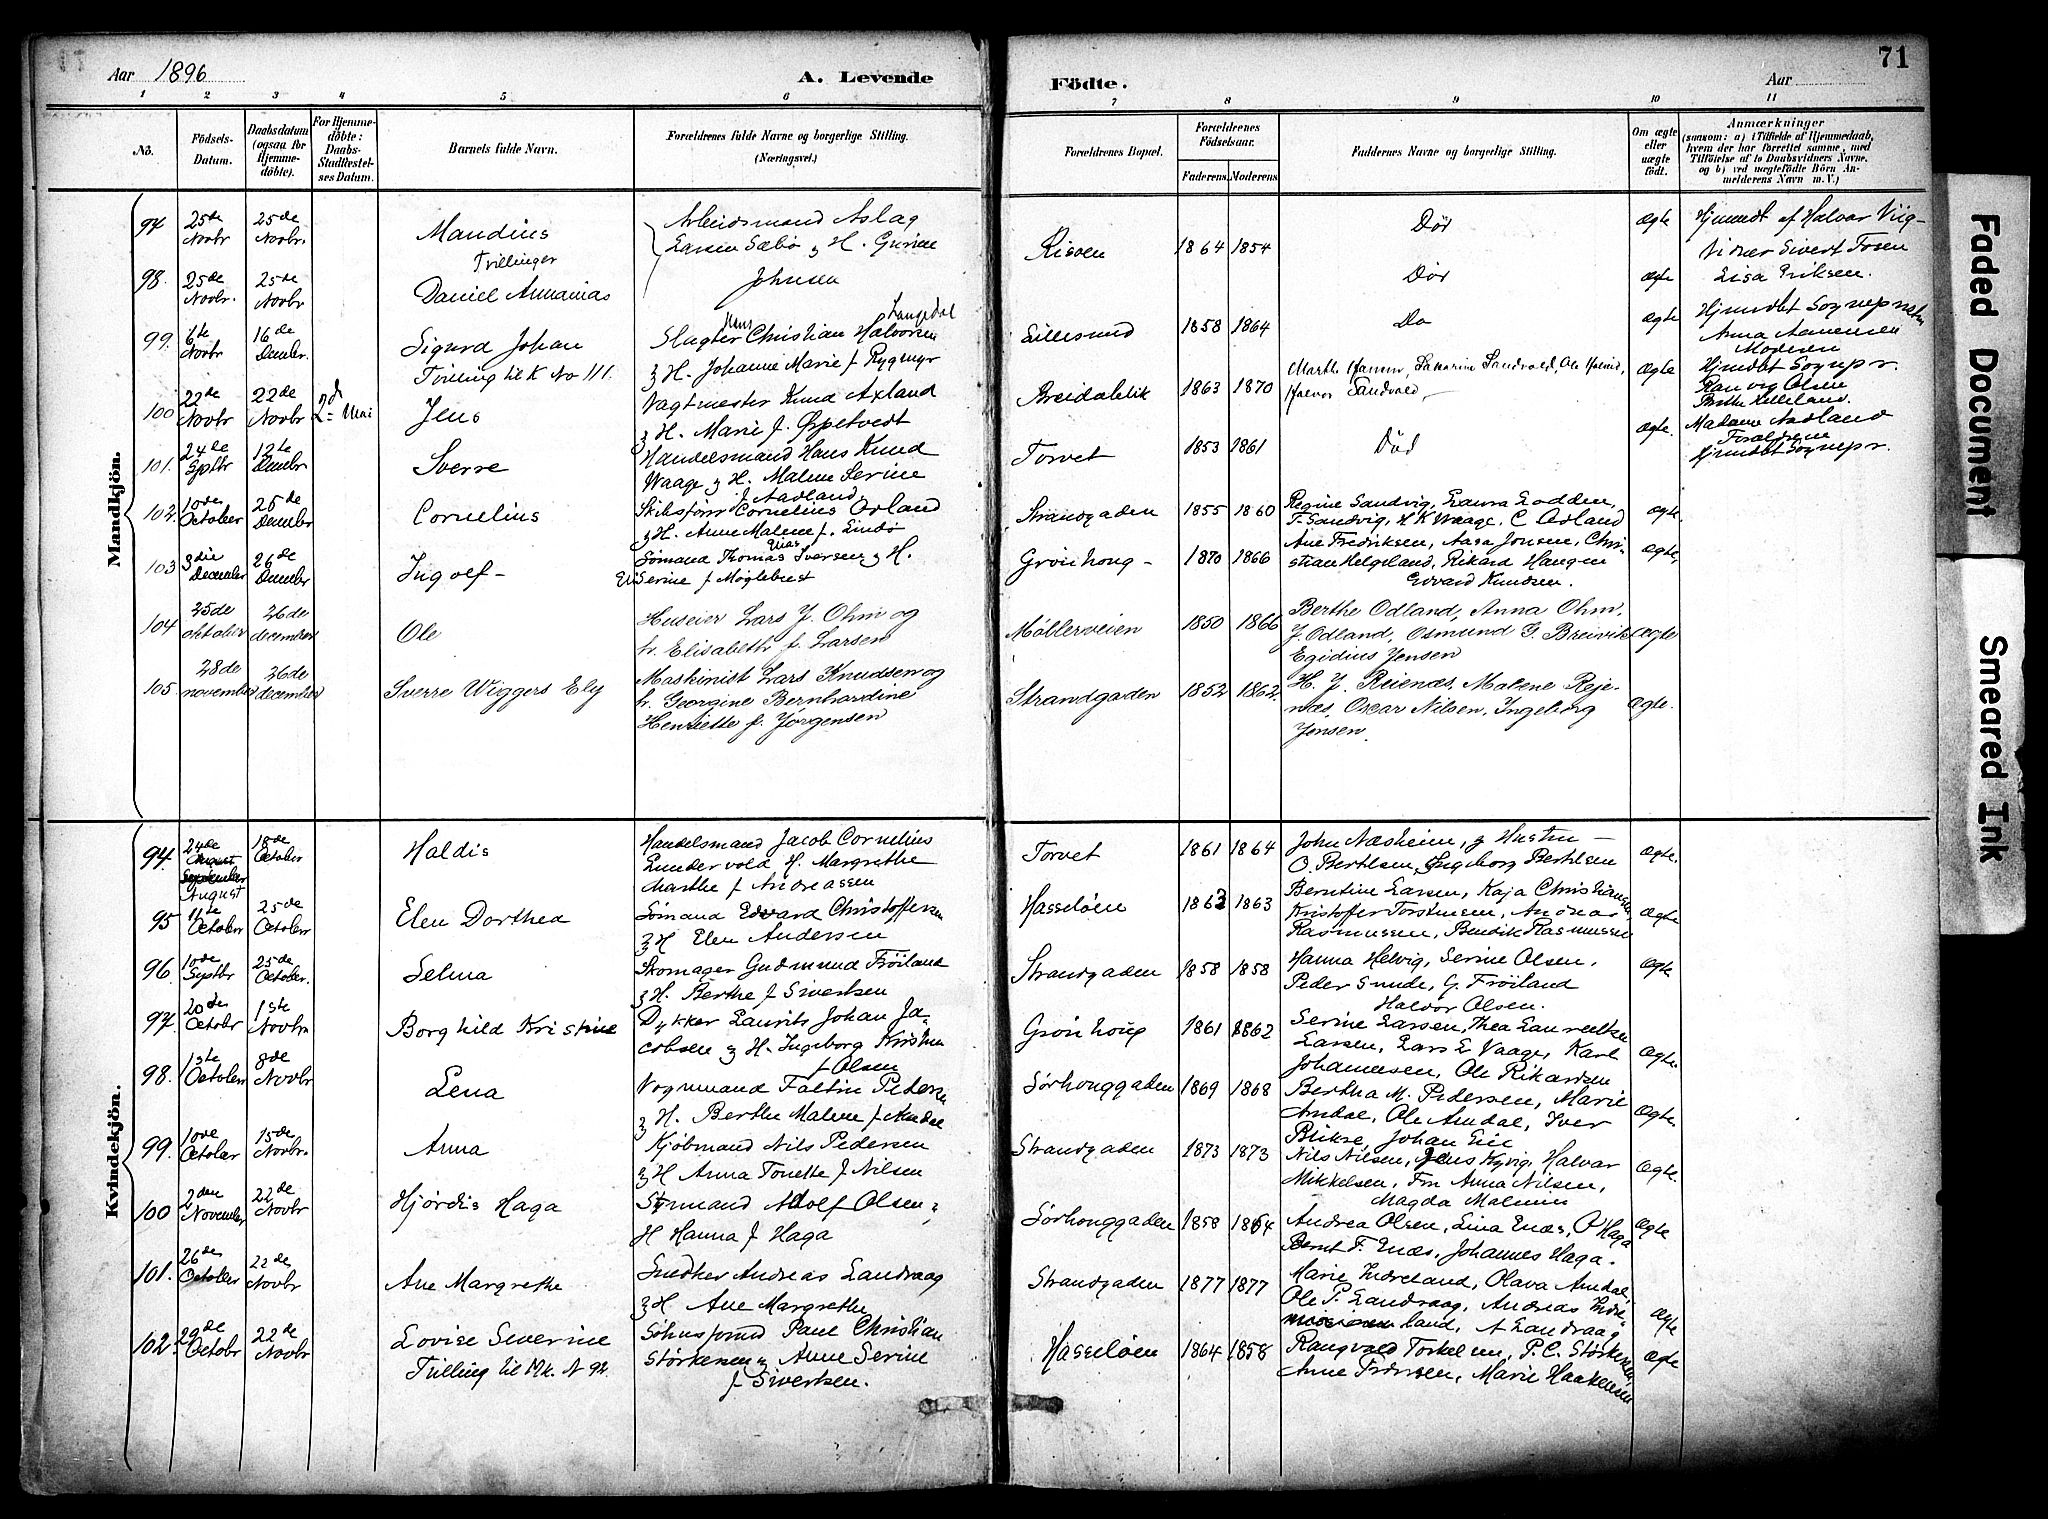 71
Aar 1896
A. Levende
Födte.
Aar
1 2 3 4 5 6 7 8 9 10 11
No.
Födsels-
Datum.
Daabsdatum
(ogsaa for
Hjemme-
döbte).
For Hjemme-
döbte:
Daabs-
Stadfæstel-
ses Datum.
Barnets fulde Navn.
Forældrenes fulde Navne og borgerlige Stilling.
(Næringsvei.)
Forældrenes Bopæl.
Forældrenes
Födselsaar.
Faderens.
Moderens.
Faddernes Navne og borgerlige Stilling.
Om ægte
eller
uægte
födt.
Anmærkninger
(saasom: a) i Tilfælde af Hjemmedaab,
hvem der har forrettet samme, med
Tilföielse af to Daabsvidners Navne,
og b) ved uægtefödte Börn An-
melderens Navn m. V.)
Mandkjön.
97 25de Novbr 25de Novbr. Mandius
Tvillinger
Arbeidsmand Aslag
Larsen Sæbö & H. Gurine
Johnsen
Risöen 1864 1854 Död Ægte
Hjemdt af Halvor Viig-
Vidner Sivert Tosen
Lisa Eriksen.
98. 25de Novbr. 25de Novbr Daniel Annanias
Död Ægte
99. 6te Novbr 16de Decmbr. Sigurd Johan
Tvilling til K No 111.
Slagter Hans Christian Halvorsen Langedal
& H. Johanne Marie f. Rygmyr
Lillesund 1858 1864 Do Ægte
Hjemdbt Sognepresten
Anna Aanensen
Moderen
100 22de Novbr 22de Novbr 2d Mai Jens
Vagtmester Knud Axland
& H. Marie f. Øspetvedt
Breidablik 1863 1870
Marthe Hamre, Zakarine Sandvold, Ole
Halvor Sandvold
Ægte
Hjmdbt Sognepr.
Olsen
Berthe Helleland.
101. 24de Sptbr 12te Decmbr Sverre
Handelsmand Hans Knud
Waage & H. Malene Serine
f. Aadland
Torvet 1853 1861 Död Ægte.
Madame Aadland
Forældrene
Hjmdbt Sognepr.
102. 10de October 26de Decmbr Cornelius
Skibsförer Cornelius Odland
& H. Anne Malene f. Lindö
Strandgaden 1855 1860
Regine Sandvig, Laura Lodden,
T. Sandvig, H K Waage, C Odland
Ægte.
103 3die December 26de Decmbr Ingolf -
Sömand Thomas Elias Iversen & H.
Eli Serine f Möglebust
Grönhoug - 1870 1866
Ane Fredriksen, Aasa Jonsen, Chri-
stian Helgeland, Rikard Haugen
Edvard Knudsen.
Ægte,
104 25de oktober 26de december Ole
Huseier Lars J. Ohm og
h. Elisabeth f. Larsen
Møllerveien 1850 1866
Berthe Odland, Anna Ohm,
J. Odland, Osmund G. Breivik
Egidius Jensen
Ægte
105. 28de november 26de december Sverre Wiggers Ely
Maskinist Lars Knudsen og
h. Georgine Bernhardine
Henriette f. Jørgensen
Strandgaden 1852 1862.
H. J. Reienæs, Malene Reje-
næs, Oscar Nilsen, Ingeborg
Jensen.
Ægte.
Kvindekjön.
94. 24de August 18de October Haldis
Handelsmand Jacob Cornelius
Lundervold H. Margrethe
Marthe f Andreassen
Torvet 1861 1864
John Næsheim, & Hustru -
O. Bertelsen, Ingeborg Bertelsen
Ægte.
95 11te October 25de October Elen Dorthea
Sömand Edvard Christoffersen
& H Elen Andersen
Hasselöen 1863 1863
Berntine Larsen, Kaja Christiansen
Kristoffer Torstensen, Andreas
Rasmussen, Bendik Rasmussen
Ægte
96. 10de Septbr 25de October. Selma
Skomager Gudmund Fröiland
& H. Berthe f Sivertsen
Strandgaden 1858 1858
Hanna Helvig, Serine Olsen,
Peder Sunde, G. Fröiland
Halvor Olsen.
Ægte
97. 20de Octobr 1ste Novbr Borghild Kristine
Dykker Laurits Johan Ja-
cobsen & H. Ingeborg Kristine
f Olsen
Grönhoug 1861 1862
Serine Larsen, Thea Lauritsen
Larsen, Lars E Vaage, Karl
Johannesen, Ole Rikardsen
Ægte.
98. 1ste October 8de Novbr Lena
Vognmand Faltin Pedersen
& H. Berthe Malene f Amdal
Sørhouggaden 1869 1868
Bertha M. Pedersen, Marie
Amdal, Ole Amdal, Iver
Blikse, Johan Eie
Ægte.
99. 10de October 15de Novbr. Anna
Kjöbmand Nils Pedersen
& H Anna Tonette f Nilsen
Strandgaden 1873 1873
Nils Nilsen, Jens Kyvig, Halvar
Mikkelsen, Fru Anna Nilsen,
Magda Malmin
Ægte
100 2den November 22de Novbr Hjørdis Haga
Styrmand Adolf Olsen &
H Hanna f Haga
Sørhouggaden 1858 1864
Andrea Olsen, Lina Enæs, O Haga
Bernt T. Enæs, Johannes Haga.
Ægte
101. 26de October 22de Novbr Ane Margrethe
Snedker Andreas Landraag
& H. Ane Margrethe
Strandgaden 1877 1877
Marie Indreland, Olava Amdal,
Ole P. Landraag, Andreas Indre-
land, A Landraag
Ægte
102. 29de Octobr 22de Novbr Lovise Severine
Tvilling til Mk. N 92.
Söhusformd Paul Christian
Störkersen & Anne Serine
f Sivertsen.
Hasselöen 1864 1858
Rangvald Torkelsen, P. C. Störkersen,
Anne Pedersen, Marie Haakensen
Ægte
Faded Document
Smeared Ink